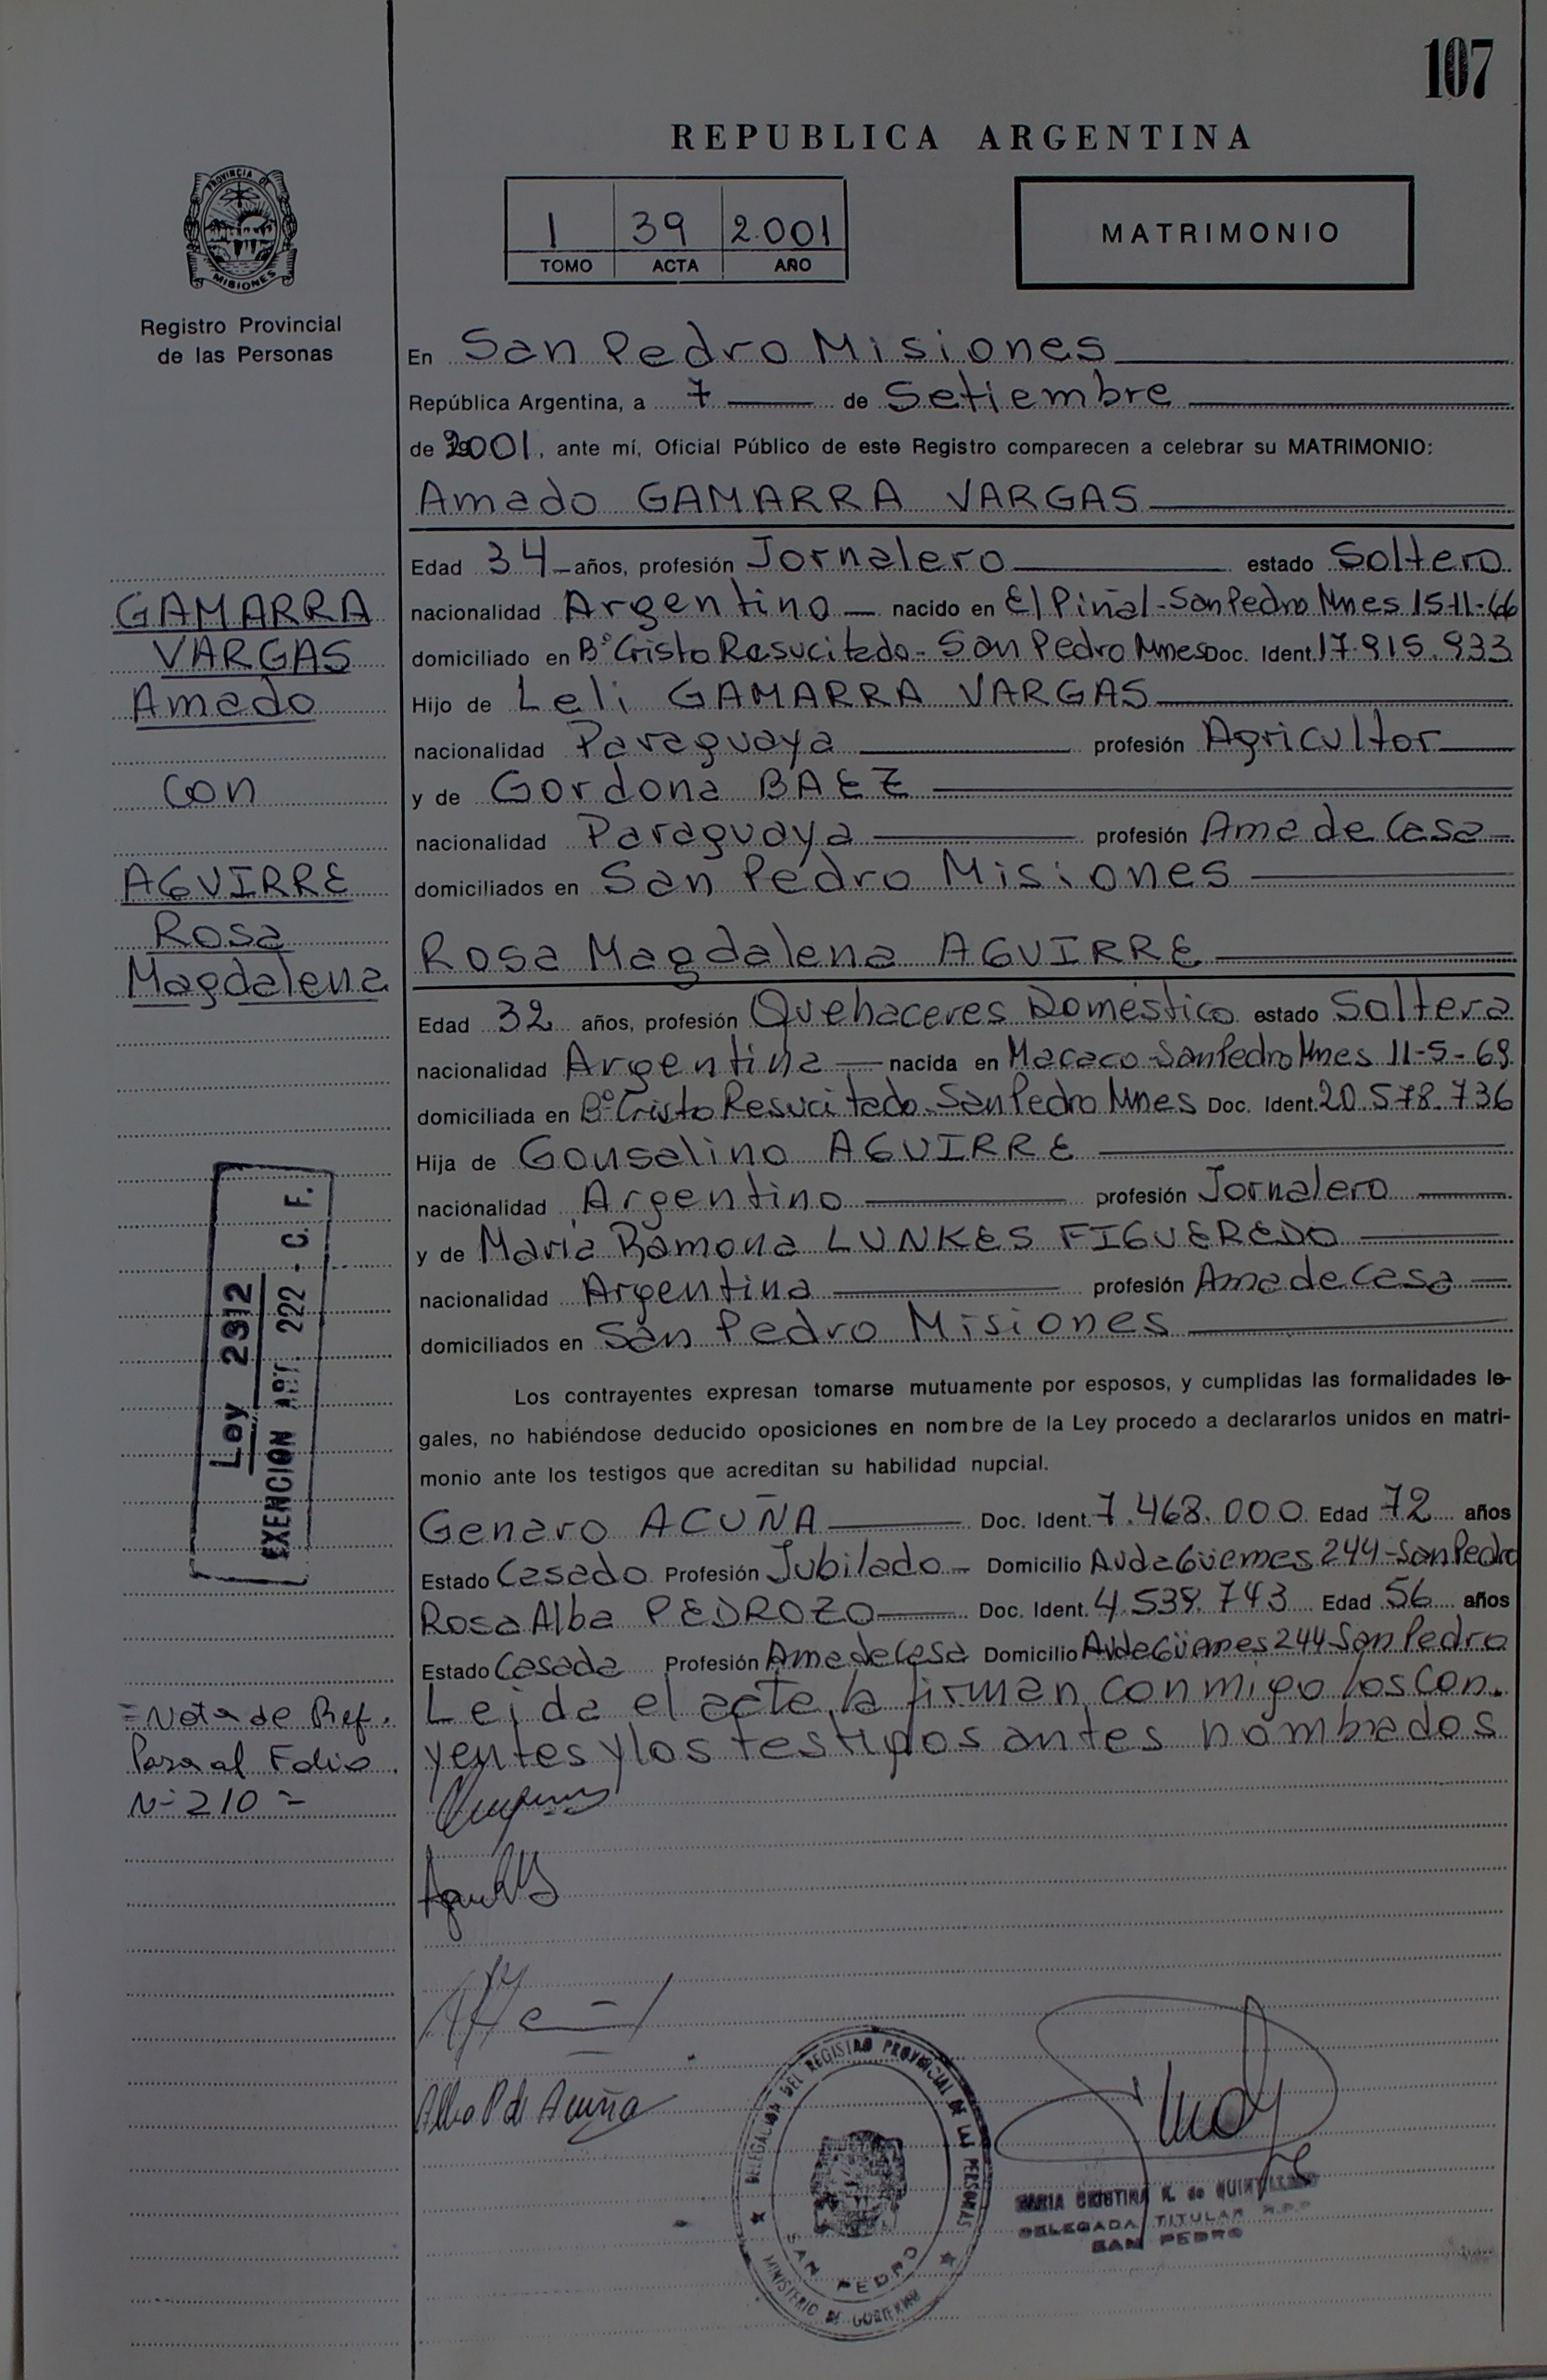 107
REPUBLICA ARGENTINA
PROVINCIA DE
MISIONES
Registro Provincial
de las Personas
1 39 2.001
TOMO ACTA AÑO
MATRIMONIO
En San Pedro Misiones
República Argentina, a 7 de Setiembre
de 2001, ante mí, Oficial Público de este Registro comparecen a celebrar su MATRIMONIO:
Amado GAMARRA VARGAS
Edad 34 años, profesión Jornalero estado Soltero
nacionalidad Argentino nacido en El Piñal - San Pedro Mnes 15-11-66
domiciliado en Bº Cristo Resucitado - San Pedro Mnes Doc. Ident. 17.915.933
Hijo de Leli GAMARRA VARGAS
nacionalidad Paraguaya profesión Agricultor
y de Gordona BAEZ
nacionalidad Paraguaya profesión Ama de Casa
domiciliados en San Pedro Misiones
Rosa Magdalena AGUIRRE
Edad 32 años, profesión Quehaceres Doméstico estado Soltera
nacionalidad Argentina nacida en Macaco - San Pedro Mnes 11-5-69
domiciliada en Bº Cristo Resucitado - San Pedro Mnes Doc. Ident. 20.578.736
Hija de Gonsalino AGUIRRE
nacionalidad Argentino profesión Jornalero
y de Maria Ramona LUNKES FIGUEREDO
nacionalidad Argentina profesión Ama de Casa
domiciliados en San Pedro Misiones
Los contrayentes expresan tomarse mutuamente por esposos, y cumplidas las formalidades le-
gales, no habiéndose deducido oposiciones en nombre de la Ley procedo a declararlos unidos en matri-
monio ante los testigos que acreditan su habilidad nupcial.
Genaro ACUÑA Doc. Ident. 7.468.000 Edad 72 años
Estado Casado Profesión Jubilado - Domicilio Avda Güemes 244 - San Pedro
Rosa Alba PEDROZO Doc. Ident. 4.539.743 Edad 56 años
Estado Casada Profesión Ama de Casa Domicilio Avda Güemes 244 San Pedro
Leida el acta, la firman conmigo los con.
yentes y los testigos antes nombrados
GAMARRA
VARGAS
Amado
con
AGUIRRE
Rosa
Magdalena
Ley 2312
EXENCION ART. 222 - C. F.
= Nota de Ref.
Pasa al Folio
Nº 210 =
Alba P de Acuña
DELEGACION DEL REGISTRO PROVINCIAL DE LAS PERSONAS
SAN PEDRO
MINISTERIO DE GOBIERNO
MARIA CRISTINA R. de
DELEGADA TITULAR R.P.P
SAN PEDRO